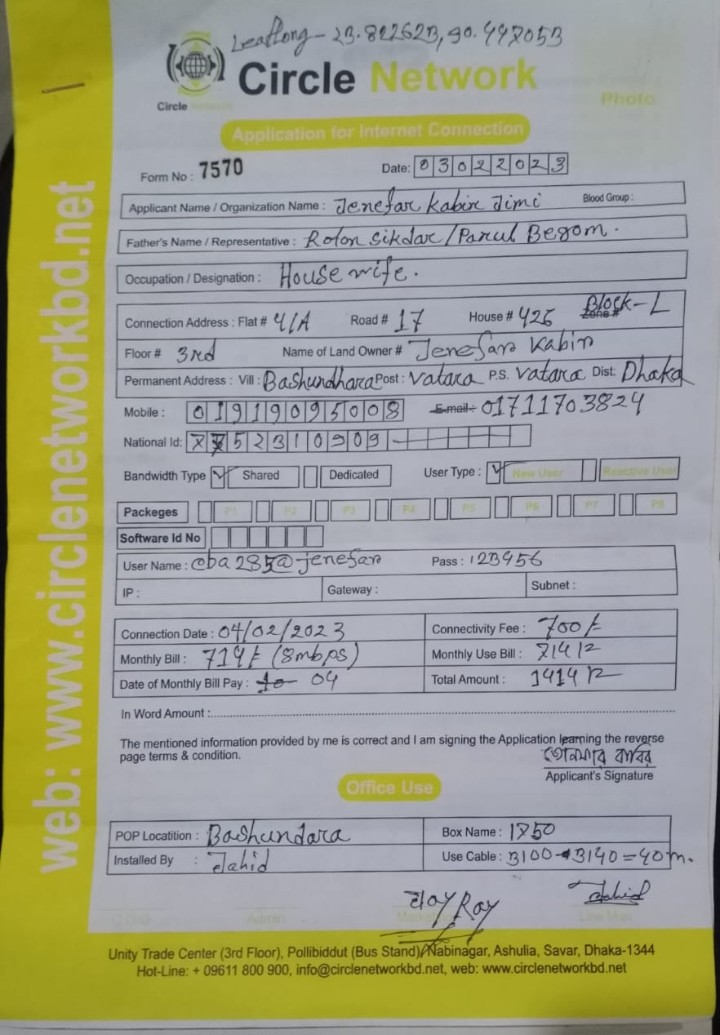 Leatlong - 23.822623, 90.447053
Circle Network
Circle Network
Photo
Application for Internet Connection
Form No : 7570 Date: 03022023
Applicant Name / Organization Name : Jenefar Kabir Jimi Blood Group :
Father's Name / Representative : Roton Sikdar / Parul Begom.
Occupation / Designation : House wife.
Connection Address : Flat # 4/A Road # 17 House # 425 Block-L Zone #
Floor # 3rd Name of Land Owner # Jenefar Kabir
Permanent Address : Vill : Bashundhara Post : Vatara P.S. Vatara Dist: Dhaka
Mobile : 01919095008 E-mail : 01711703824
National Id: 7752310909
Bandwidth Type Shared Dedicated User Type : New User Reactive User
Packeges P1 P2 P3 P4 P5 P6 P7 P8
Software Id No
User Name : cba285@jenefar Pass : 123456
IP : Gateway : Subnet :
Connection Date : 04/02/2023 Connectivity Fee : 700/-
Monthly Bill : 714/- (8mbps) Monthly Use Bill : 714/-
Date of Monthly Bill Pay : 10 04 Total Amount : 1414/-
In Word Amount :
The mentioned information provided by me is correct and I am signing the Application learning the reverse
page terms & condition.
Applicant's Signature
Office Use
POP Locatition : Bashundara Box Name : 1850
Installed By : Jahid Use Cable : 3100-3140=40m.
Roy Jahid
Admin
Unity Trade Center (3rd Floor), Pollibiddut (Bus Stand), Nabinagar, Ashulia, Savar, Dhaka-1344
Hot-Line: + 09611 800 900, info@circlenetworkbd.net, web: www.circlenetworkbd.net
web: www.circlenetworkbd.net